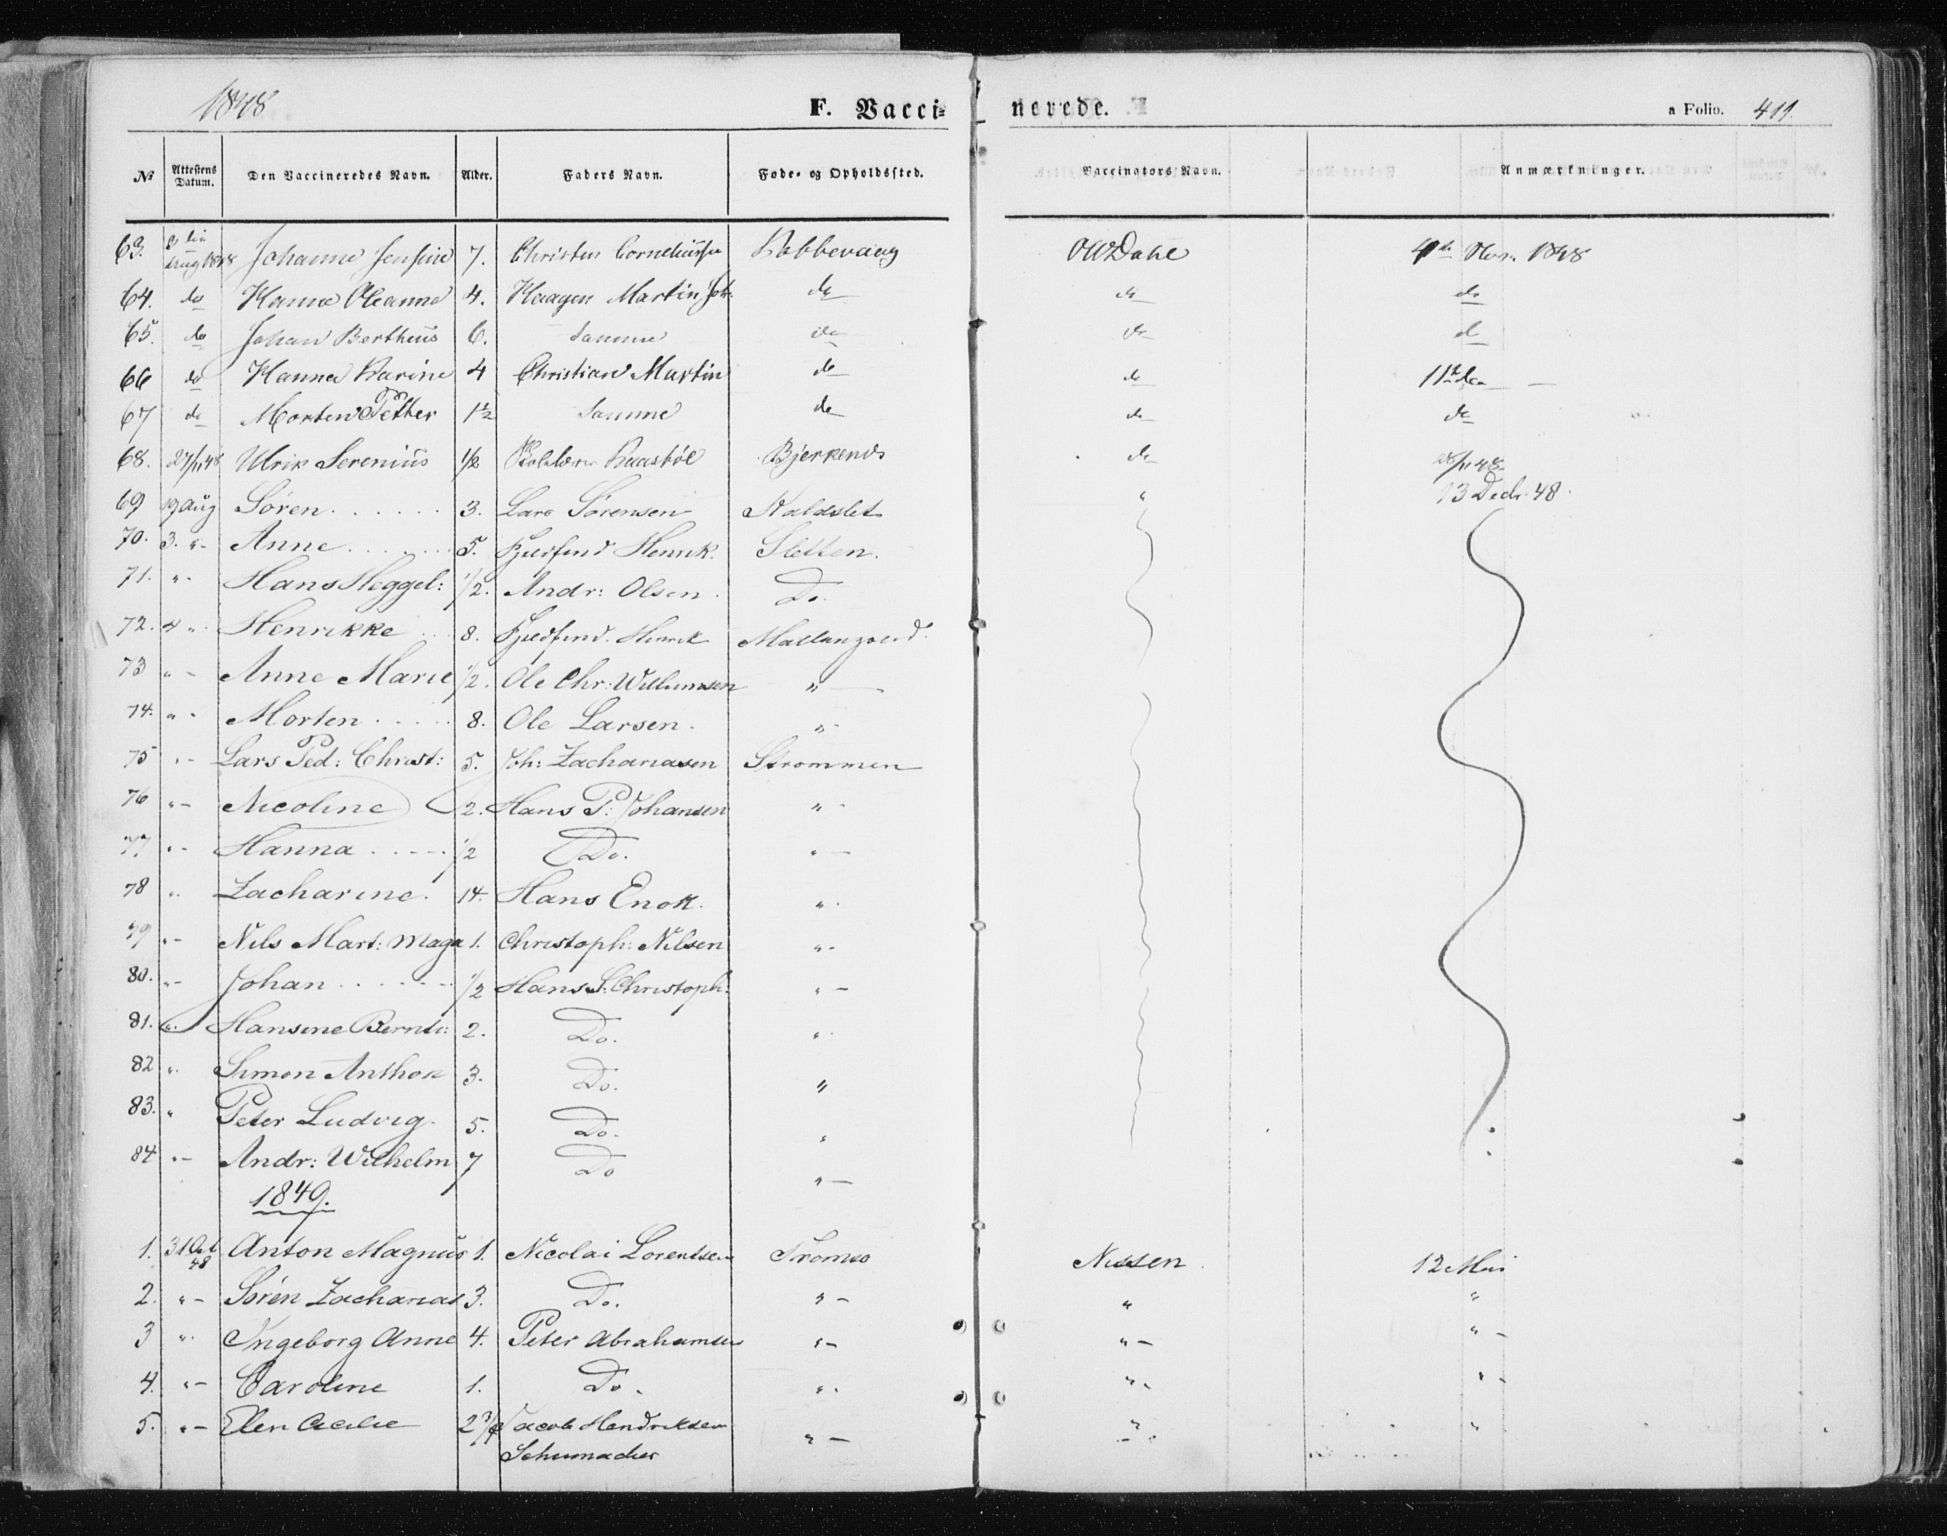 1848
F. Vaccinerede.
a Folio. 411
№ Attestens Datum. Den Vaccineredes Navn. Alder. Faders Navn. Føde- og Opholdssted. Vaccinators Navn. Anmærkninger.
63. Aug 1848 Johanne Jensine 7. Christen Corneliussen OW Dahl 4de Nov. 1848
64. do Hanna Oleanna 4. Haagen Martin Joh. do do do
65. do Johan Bertheus 6. Samme do do do
66 do Hanna Karine 4 Christian Martin do do 11te
67 do Morten Petter 1½ Samme do do do
68. 27/11 48 Ulrik Serenius ½ Bjerkenes do 28/11 48
69 19 Aug Søren 3. Lars Sørensen Kaldslet " 13 Decbr. 48.
70. 3. " - Anne 5. Fjeldfind Henrik. Sletten.
71. " - Hans Heggel: ½. Andr: Olsen. Do.
72. 4 " Henrikke 8. Fjeldfind. Henrik
73 " - Anne Marie ½. Ole Chr: Willumsen " -
74. " - Morten 8. Ole Larsen. " -
75 " - Lars Ped: Christ: 5. Joh: Zachariasen Strømmen
76 " - Nicoline 2. Hans P: Johansen " -
77 " - Hanna ½ Do. " -
78 " Zacharine. 14. Hans Enok. " -
79 " - Nils Mart: Magn 1. Christoph: Nilsen " -
80. " - Johan ½ Hans S: Christoph: " -
81. " Hansine Bernt: 2. Do. "
82 " Simon Anthon 3. Do. "
83. " Peter Ludvig. 5. Do. "
84 " - Andr: Wilhelm 7 Do " -
1849.
1. 31 Oct 48 Anton Magnus 1. Nicolai Lorentsen Tromsø Nissen 12 Mai
2. " - Søren Zacharias 3. Do. " - " "
3 " Ingeborg Anne 4. Peter Abrahamsen " - " - " -
4. " - Caroline 1. Do. " - " - " -
5. " - Elen Cecilie 2¾ Jacob Hendriksen " - " "
Schumacher